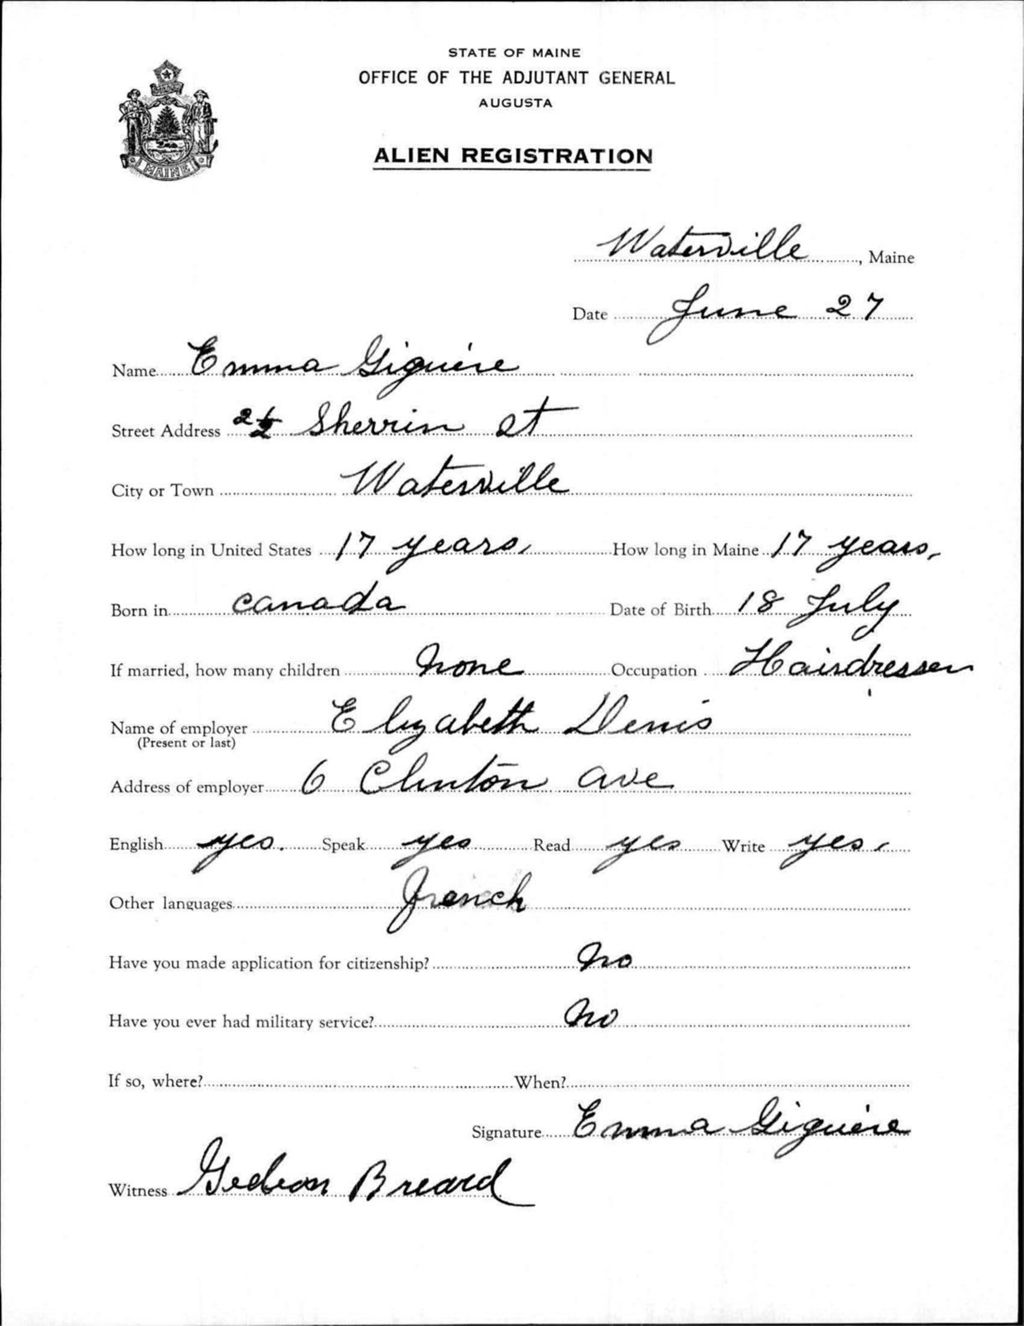 STATE OF MAINE
OFFICE OF THE ADJUTANT GENERAL
AUGUSTA
ALIEN REGISTRATION
MAINE
Waterville, Maine
Date June 27
Name Emma Giguère
Street Address 2½ Sherrin St
City or Town Waterville
How long in United States 17 years, How long in Maine 17 years,
Born in Canada Date of Birth 18 July
If married, how many children None Occupation Hairdresser
Name of employer Elizabeth Denis
(Present or last)
Address of employer 6 Clinton Ave
English yes. Speak yes Read yes Write yes,
Other languages French
Have you made application for citizenship? No
Have you ever had military service? No
If so, where? When?
Signature Emma Giguère
Witness Gedeon Breard